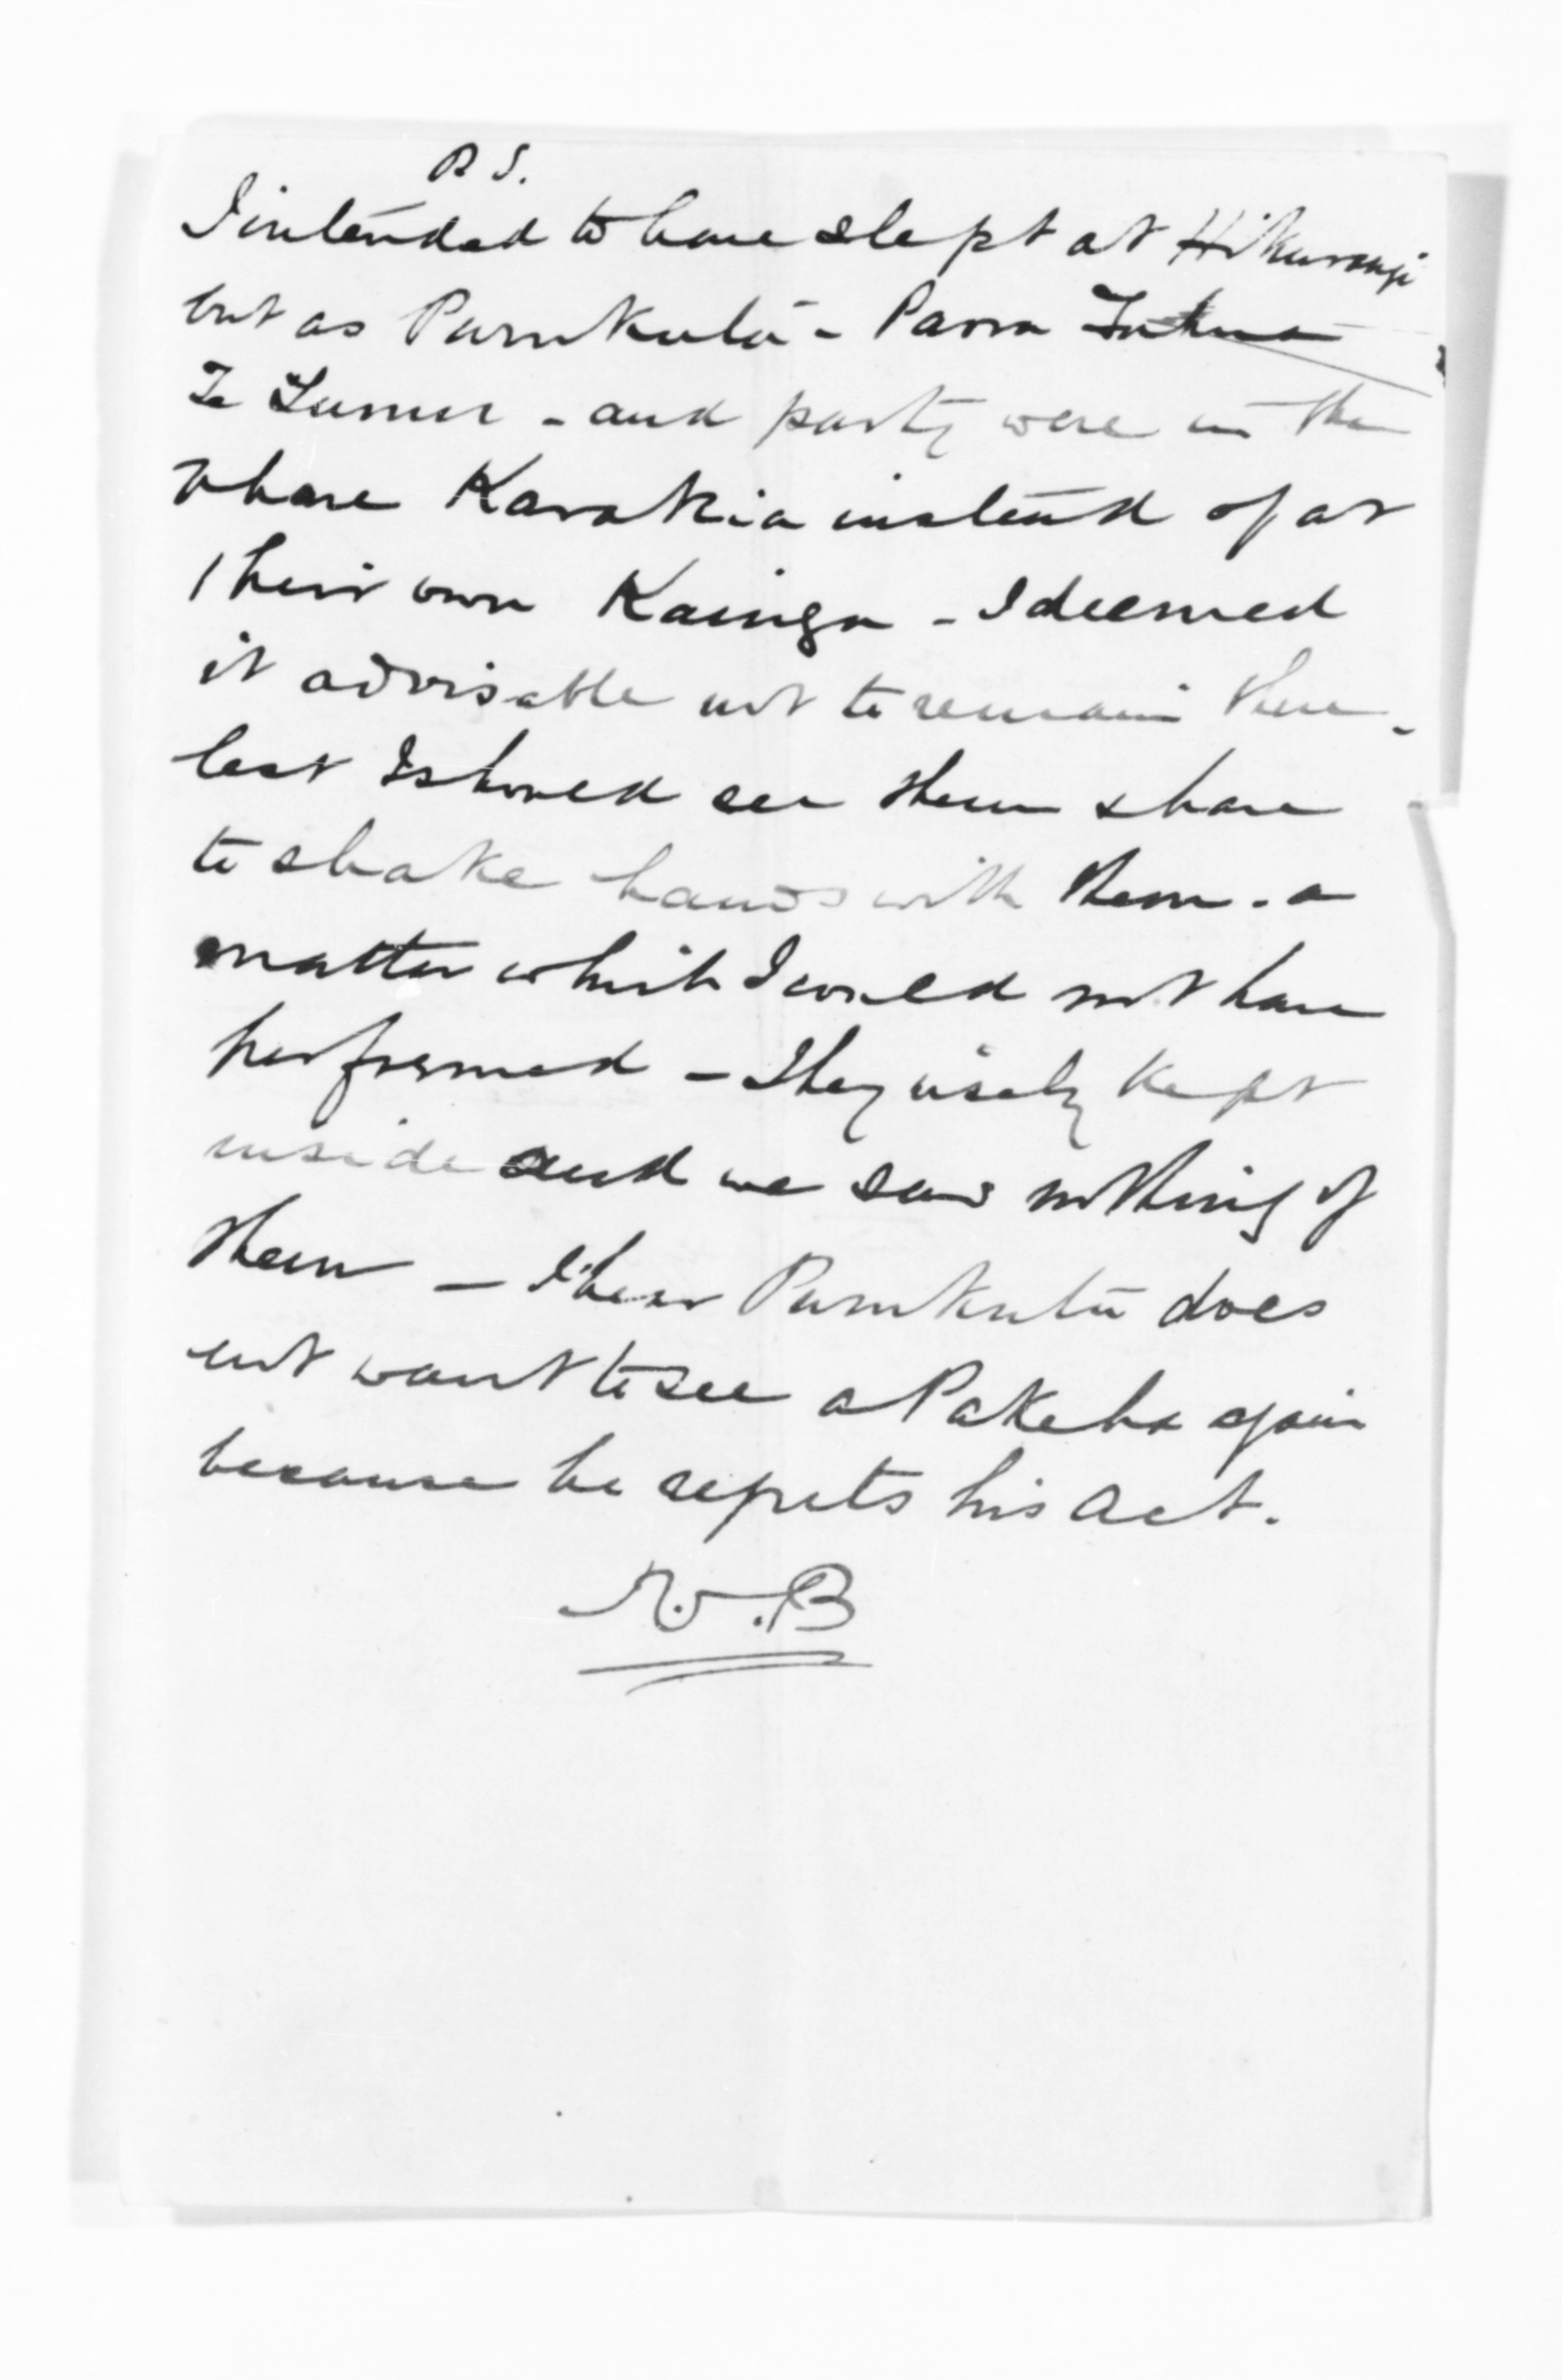 P S.
I intended to have slept at Hikurangi
but as Purukutu - Parra
Te - and party were in the
whare Karakia instead of at
their own Kainga - I deemed
it advisable not to remain there -
lest I should see them & have
to shake hands with them - a
matter which I would not have
performed - They wisely kept
inside and we saw nothing of
them - I hear Purukutu does
not want to see a Pakeha again
because he regrets his act.
B